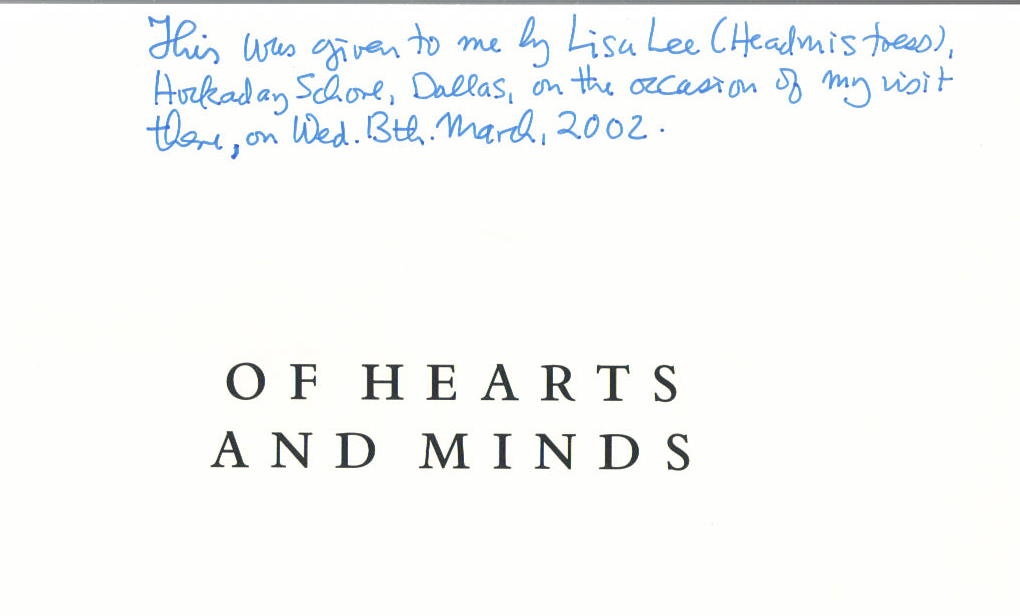 This was given to me by Lisa Lee (Headmistress),
Hockaday School, Dallas, on the occasion of my visit
there, on Wed. 13th. March, 2002.
OF HEARTS
AND MINDS